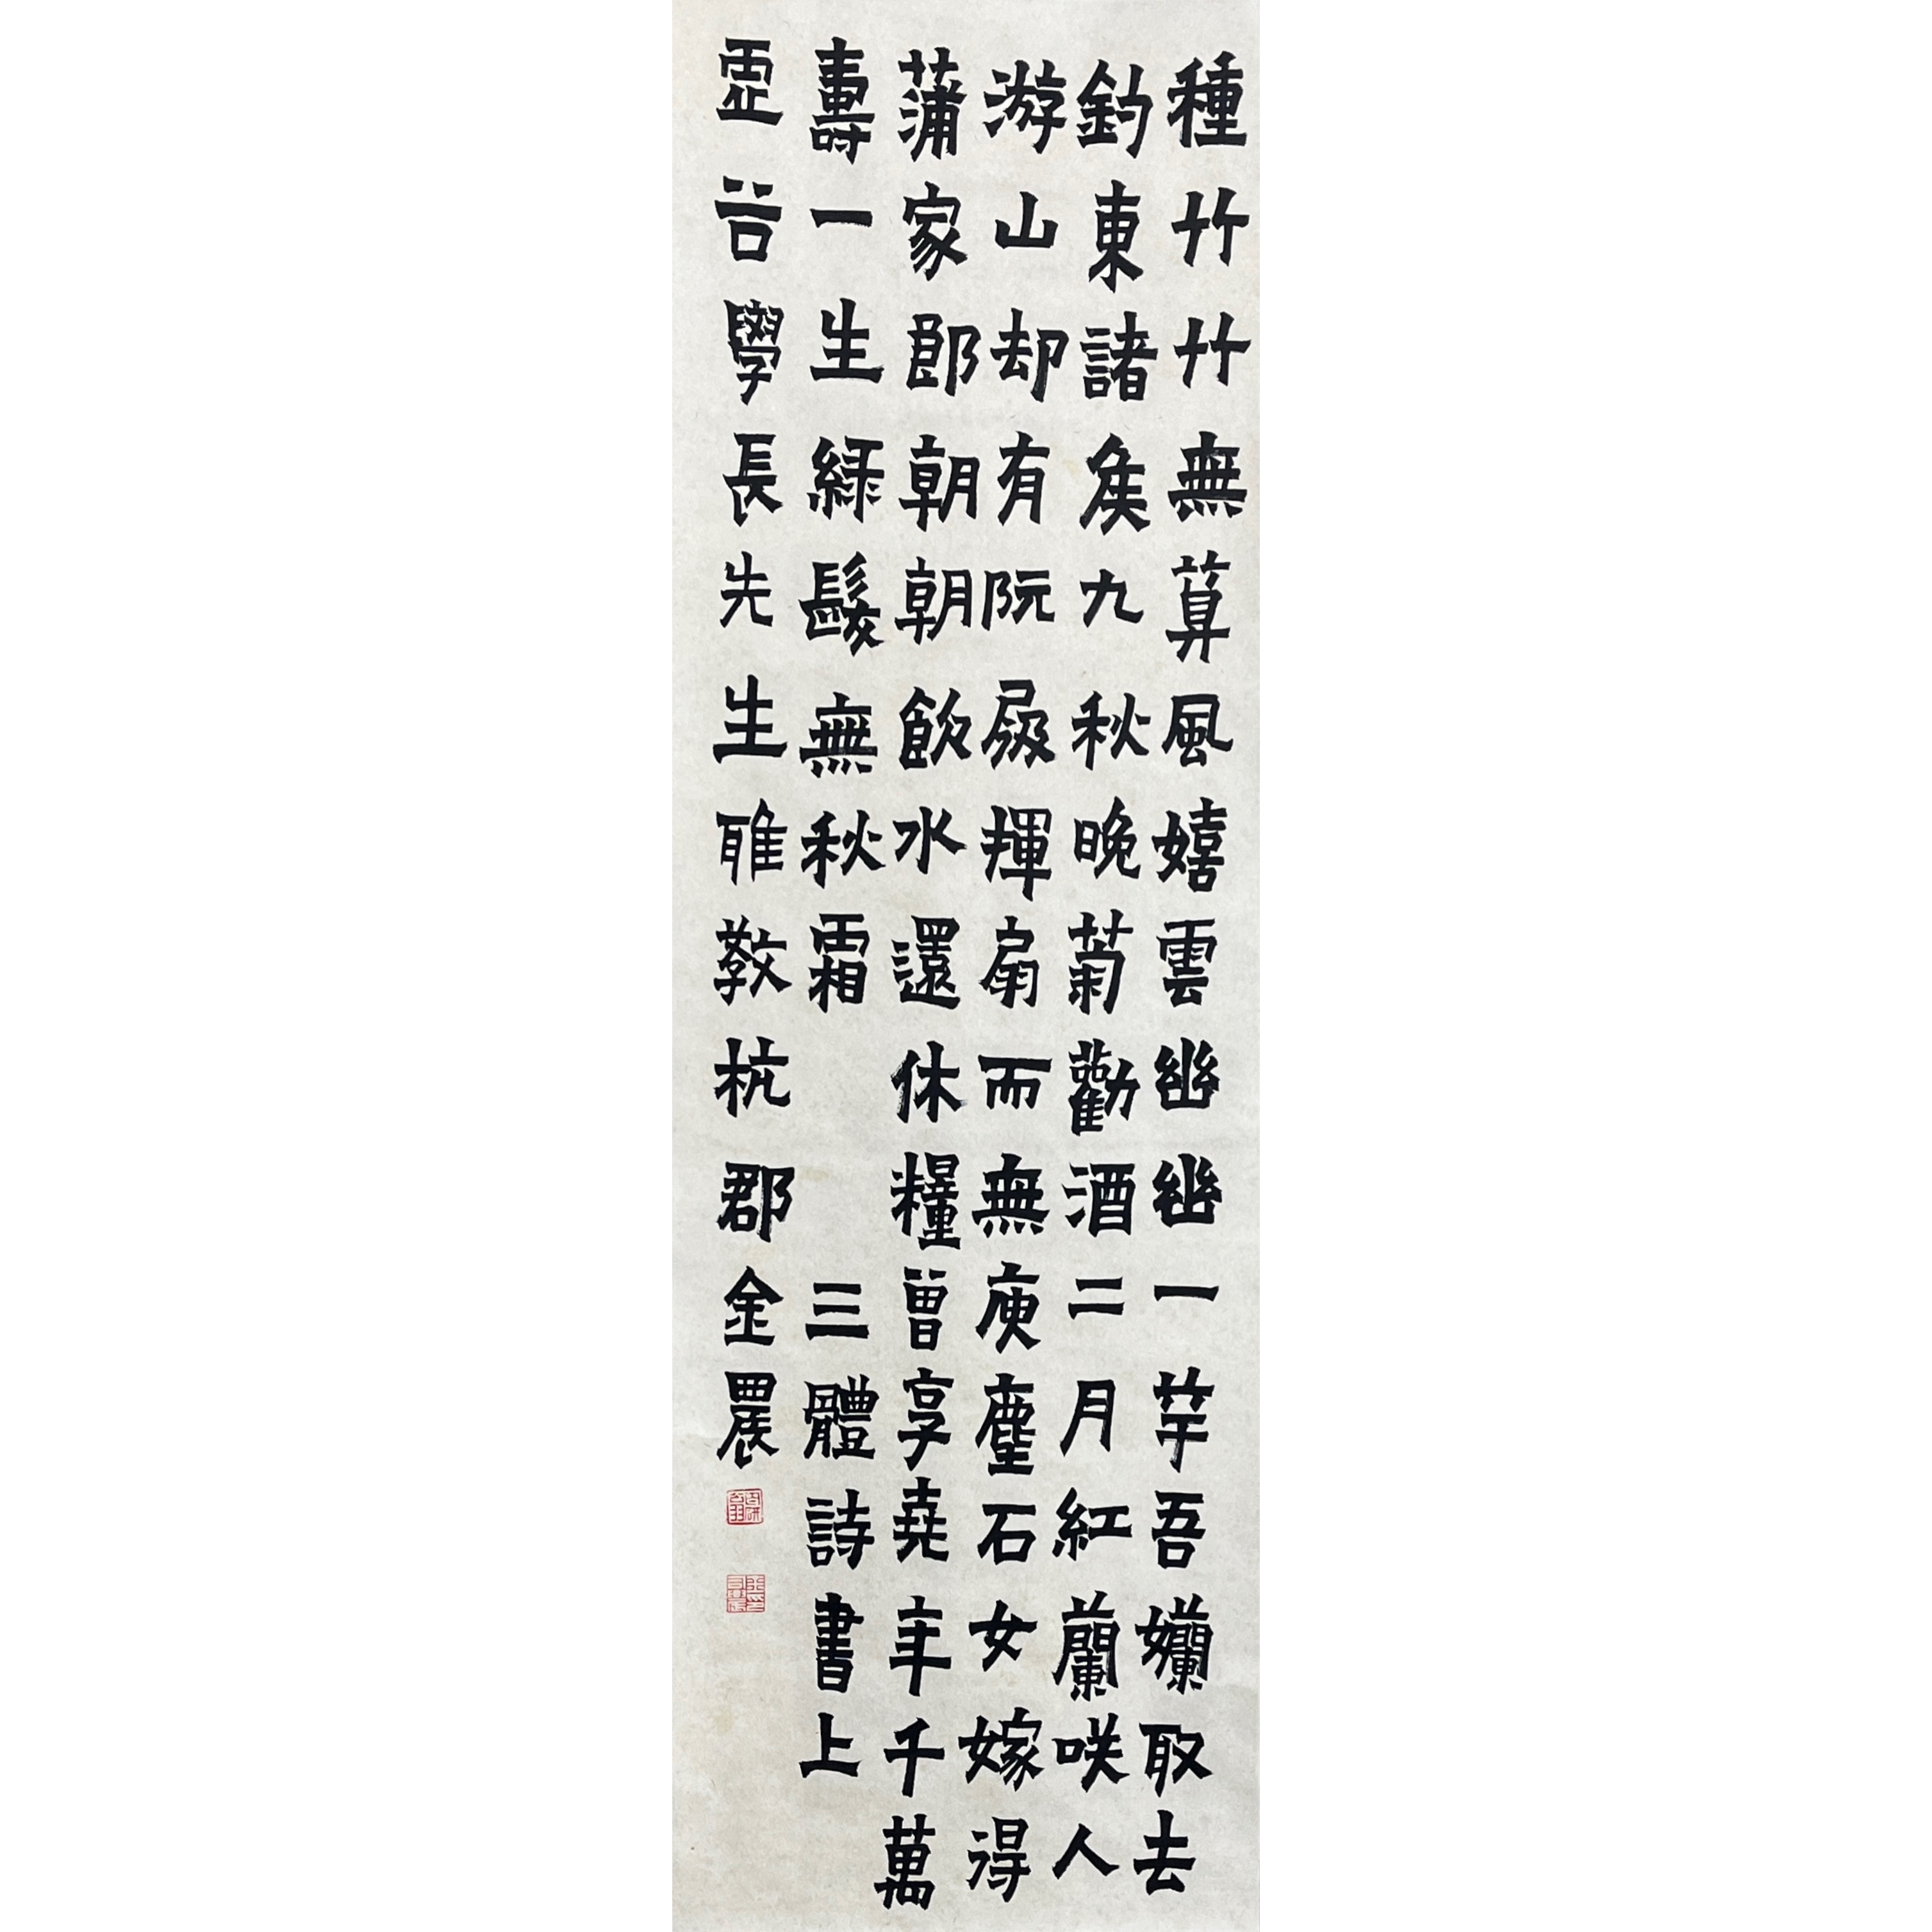 種竹竹無算風嬉雲幽幽一竿吾孏取去
釣東諸矦九秋晚菊勸酒二月紅蘭咲人
游山却有阮屐揮扇而無庾麈石女嫁得
蒲家郎朝朝飲水還休糧曾享堯年千萬
壽一生綠髮無秋霜 三體詩書上
虛谷學長先生雅教杭郡金農